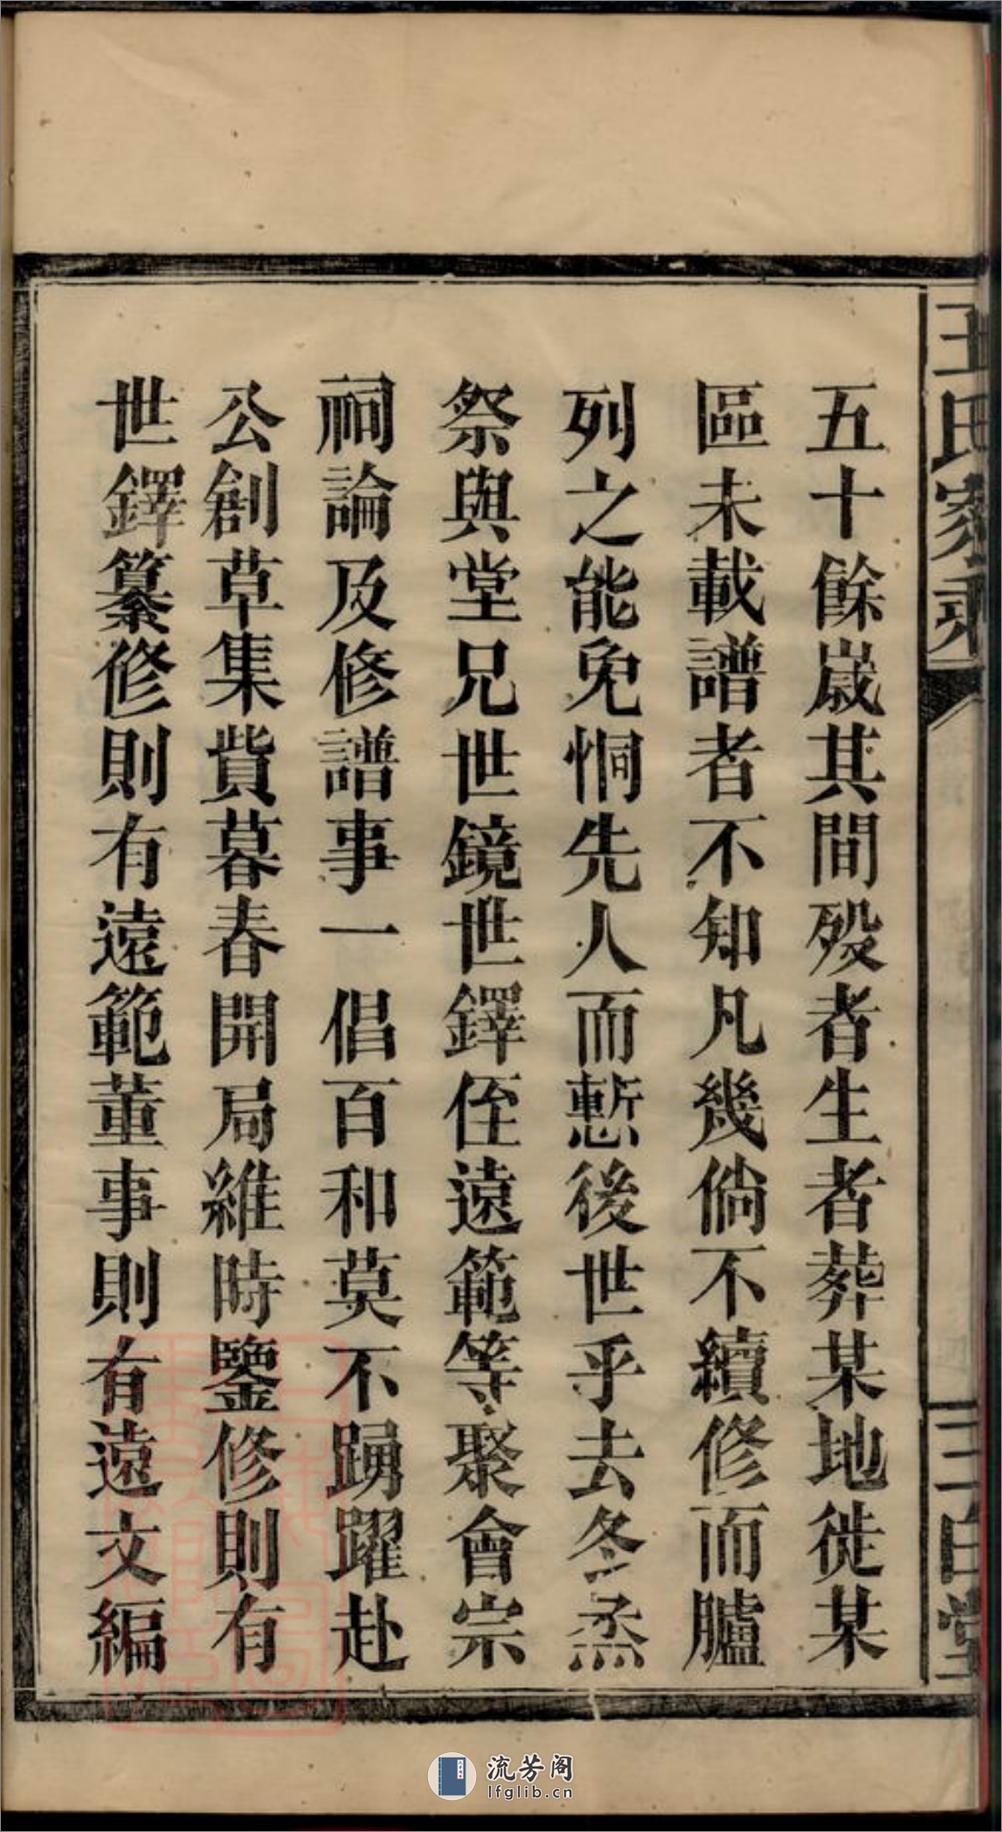 王氏家乘
三白堂
五十餘歲其間歿者生者葬某地徙某
區未載譜者不知凡幾倘不續修而臚
列之能免恫先人而慙後世乎去冬烝
祭與堂兄世鏡世鐸侄遠範等聚會宗
祠論及修譜事一倡百和莫不踴躍赴
公創草集貲暮春開局維時鑒修則有
世鐸纂修則有遠範董事則有遠文編
流芳阁
lfglib.cn